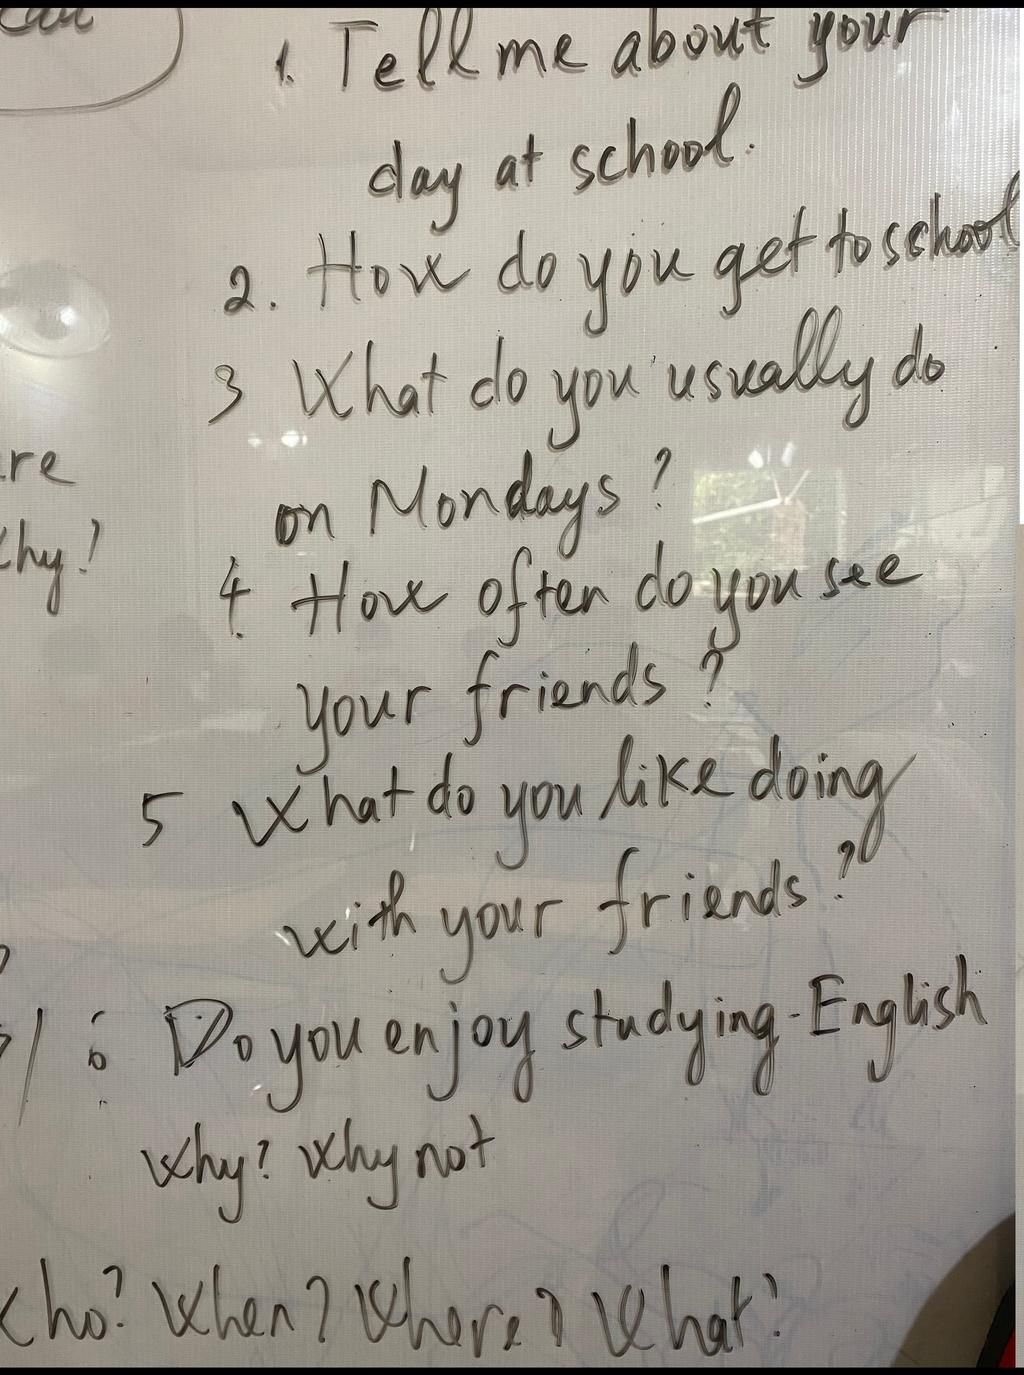 1. Tell me about your
day at school.
2. How do you get to school
3 What do you usually do
on Mondays?
4. How often do you see
your friends?
5 What do you like doing
with your friends?
6 Do you enjoy studying English
Why? Why not
Who? When? Where? What?